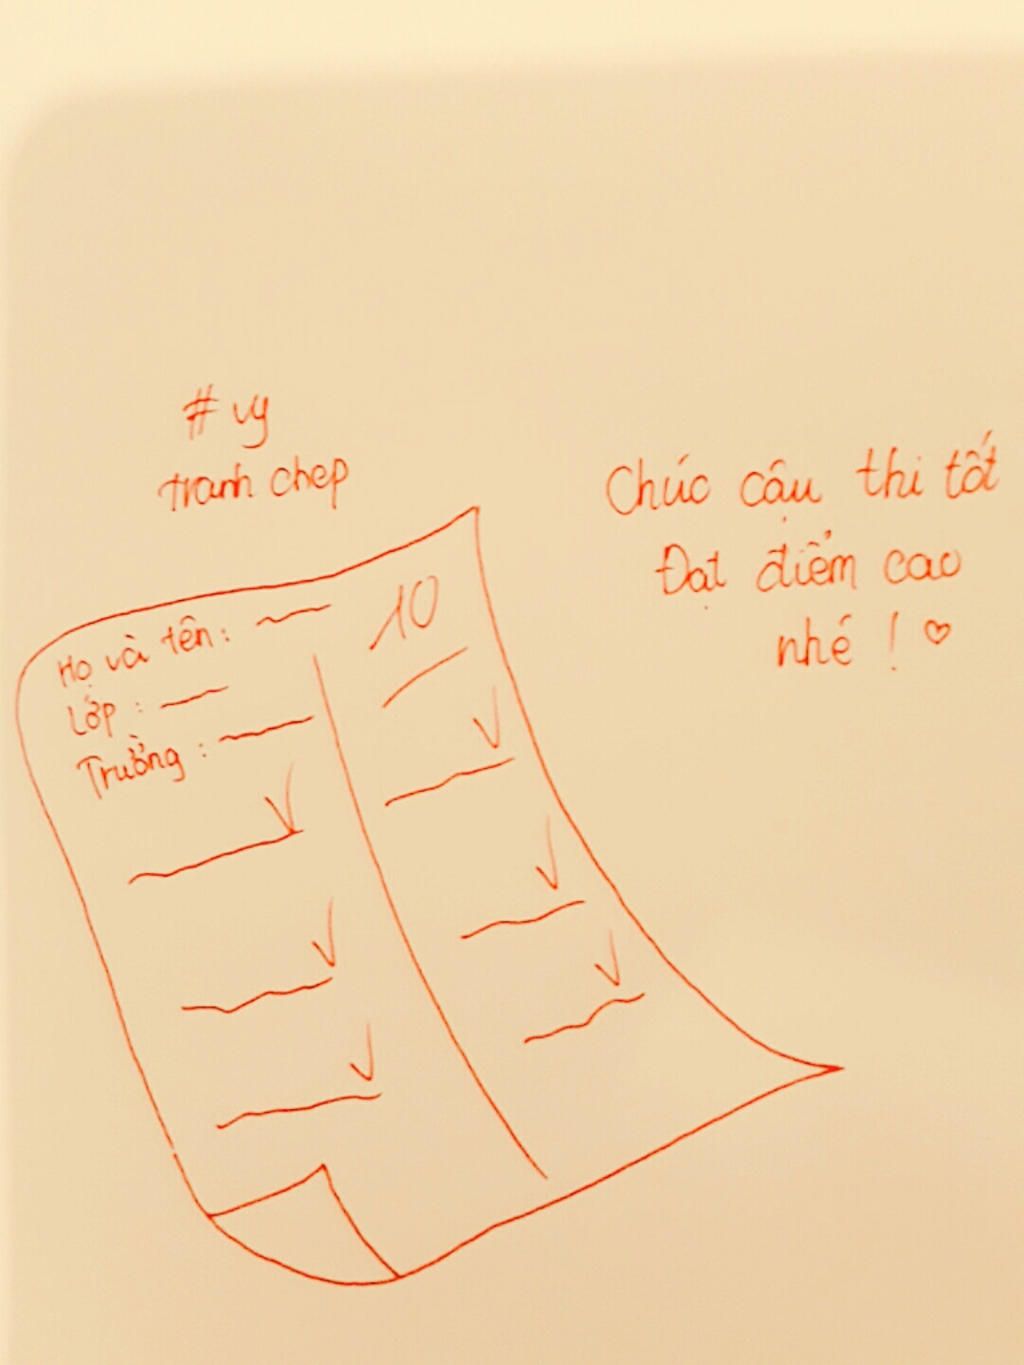 # vy
tranh chep
Chúc cậu thi tốt
Đạt điểm cao
nhé ! ♡
Họ và tên :
10
Lớp :
Trường :